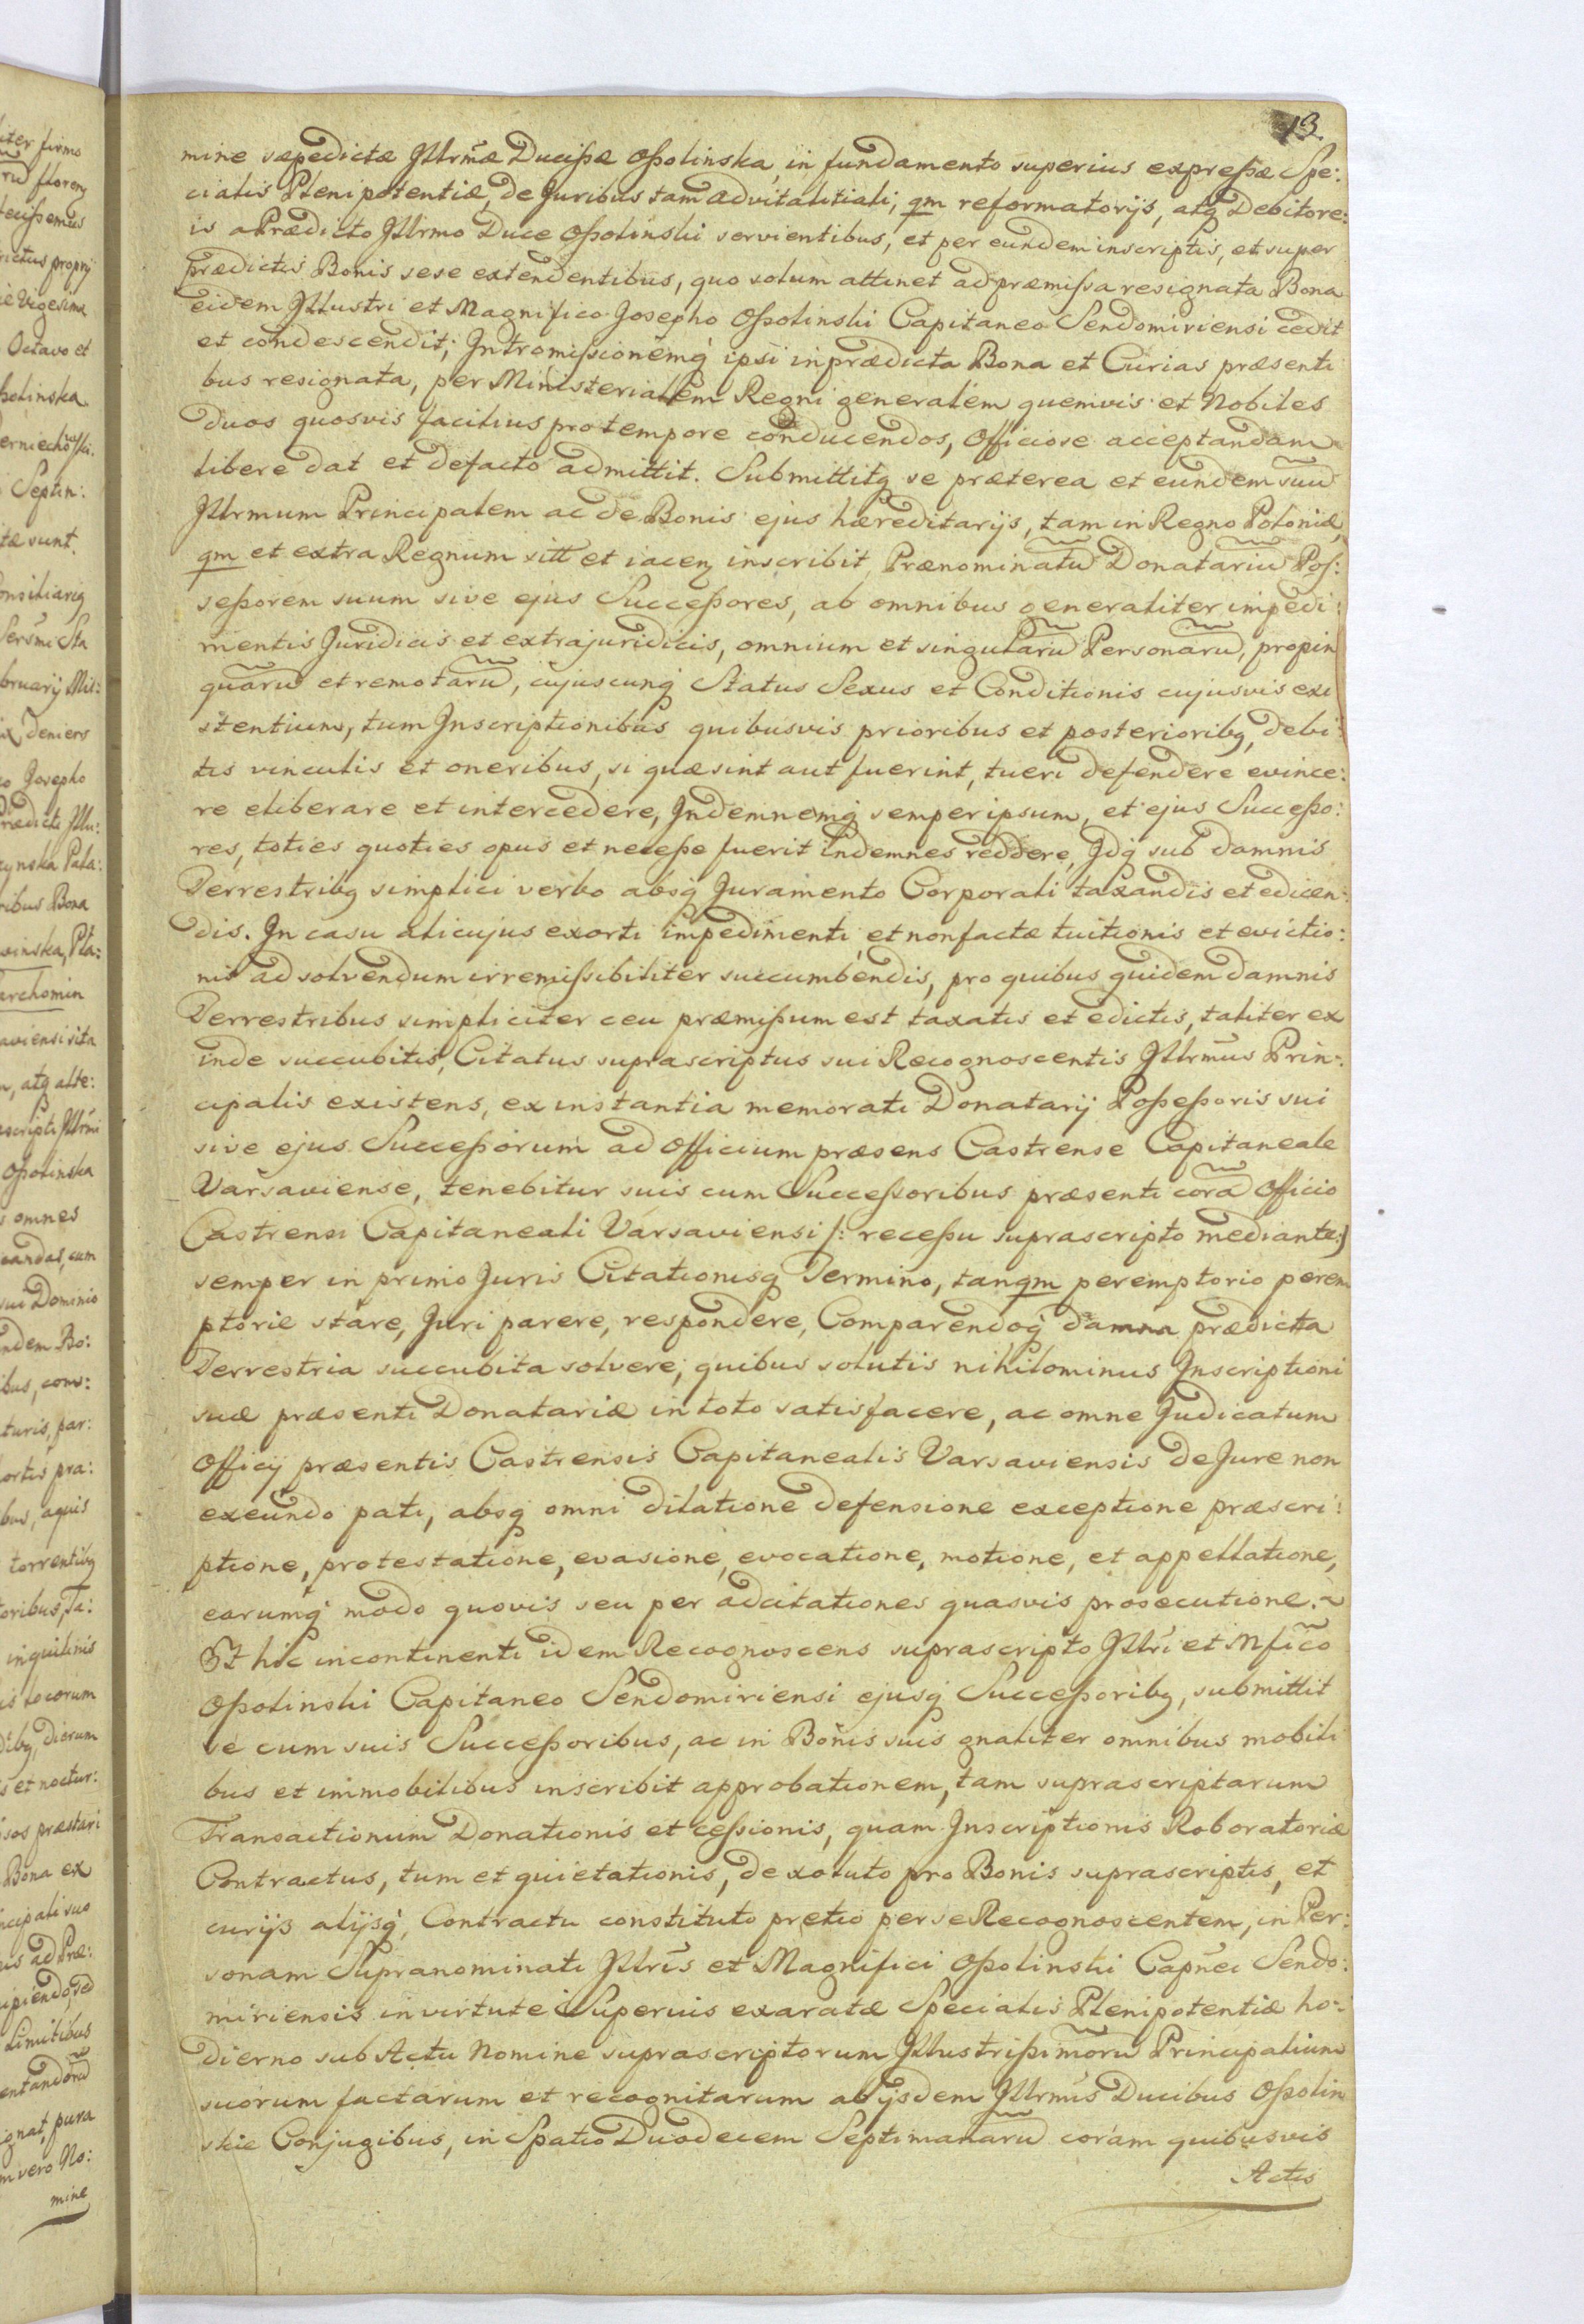 13
mine sæpedictæ Jllrmæ Ducißæ Oßolinska, in fundamento superius expreßæ Spe:
cialis Plenipotentiæ, de Juribus tam advitalitiali, qm reformatorijs, atq Debitore:
is a Prædicto Jllrmo Duce Oßolinski servientibus, et per eundem inscriptis, et super
prædictis Bonis sese extendentibus, quo solum attinet ad præmissa resignata Bona
eidem Jllustri et Magnifico Josepho Oßolinski Capitaneo Sendomiriensi cedit
et condescendit; Jntromissionemq ipsi in prædicta Bona et Curias præsenti
bus resignata, per Ministerialem Regni generalem quemvis et Nobiles
duos quosvis facilius pro tempore conducendos, Officiose acceptandam
libere dat et defacto admittit. Submittitq se præterea et eundem suũ
Jllrmum Principalem ac de Bonis ejus hæreditarijs, tam in Regno Poloniæ,
qm et extra Regnum sitt et iacen inscribit, Prænominatũ Donatariũ Pos:
seßorem suum sive ejus Succeßores, ab omnibus generaliter impedi:
mentis Juridicis et extrajuridicis, omnium et singularũ Personarũ, propin
quarũ et remotarũ, cujuscunq Status Sexus et Conditionis cujusvis exi
stentium, tum Jnscriptionibus quibusvis prioribus et posterioribq, debi:
tis vinculis et oneribus, si quæ sint aut fuerint, tueri defendere evince:
re eliberare et intercedere, Jndemnemq semper ipsum, et ejus Succeßo:
res, toties quoties opus et neceße fuerit indemnes reddere, Jdq sub damnis
Terrestribq simplici verbo absq Juramento Corporali taxandis et edicen:
dis. Jn casu alicujus exorti impedimenti, et non factæ tuitionis et evictio:
nis ad solvendum irremissibiliter succumbendis, pro quibus quidem damnis
Terrestribus simpliciter ceu præmißum est taxatis et edictis, taliter ex
inde succubitis, Citatus suprascriptus sui Recognoscentis Jllrm̃us Prin:
cipalis existens, ex instantia memorati Donatarij Poßeßoris sui
sive ejus Succeßorum ad Officium præsens Castrense Capitaneale
Varsaviense, tenebitur suis cum Succeßoribus præsenti corã Officio
Castrensi Capitaneali Varsaviensi /: receßu suprascripto mediante:/
semper in primo Juris Citationisq Termino, tanqm peremptorio perem
ptorie stare, Juri parere, respondere, Comparendoq damna prædicta
Terrestria succubita solvere; quibus solutis nihilominus Jnscriptioni
suæ præsenti Donatariæ in toto satisfacere, ac omne Judicatum
Officij præsentis Castrensis Capitanealis Varsaviensis de Jure non
exeundo pati, absq omni dilatione defensione exceptione præscri:
ptione, protestatione, evasione, evocatione, motione, et appellatione,
earumq modo quovis seu per adcitationes quasvis prosecutione.~
Et hic incontinenti idem Recognoscens suprascripto Jllri et Mfico
Oßolinski Capitaneo Sendomiriensi ejusq Succeßoribq, submittit
se cum suis Succeßoribus, ac in Bonis suis gnaliter omnibus mobili
bus et immobilibus inscribit approbationem, tam suprascriptarum
Transactionum Donationis et Ceßionis, quam Jnscriptionis Roboratoriæ
Contractus, tum et quietationis, de xoluto pro Bonis suprascriptis, et
curijs alijsq, Contractu constituto pretio per se Recognoscentem, in Per:
sonam Supranominati Jllris et Magnifici Oßolinski Capnei Sendo:
miriensis in virtute Superius exaratæ Specialis Plenipotentiæ ho:
dierno sub Actu Nomine suprascriptorum Jllustrißimorũ Principalium
suorum factarum et recognitarum ab ijsdem Jllrmis Ducibus Oßolin
skie Conjugibus, in Spatio Duodecem Septimanarũ coram quibusvis
Actis